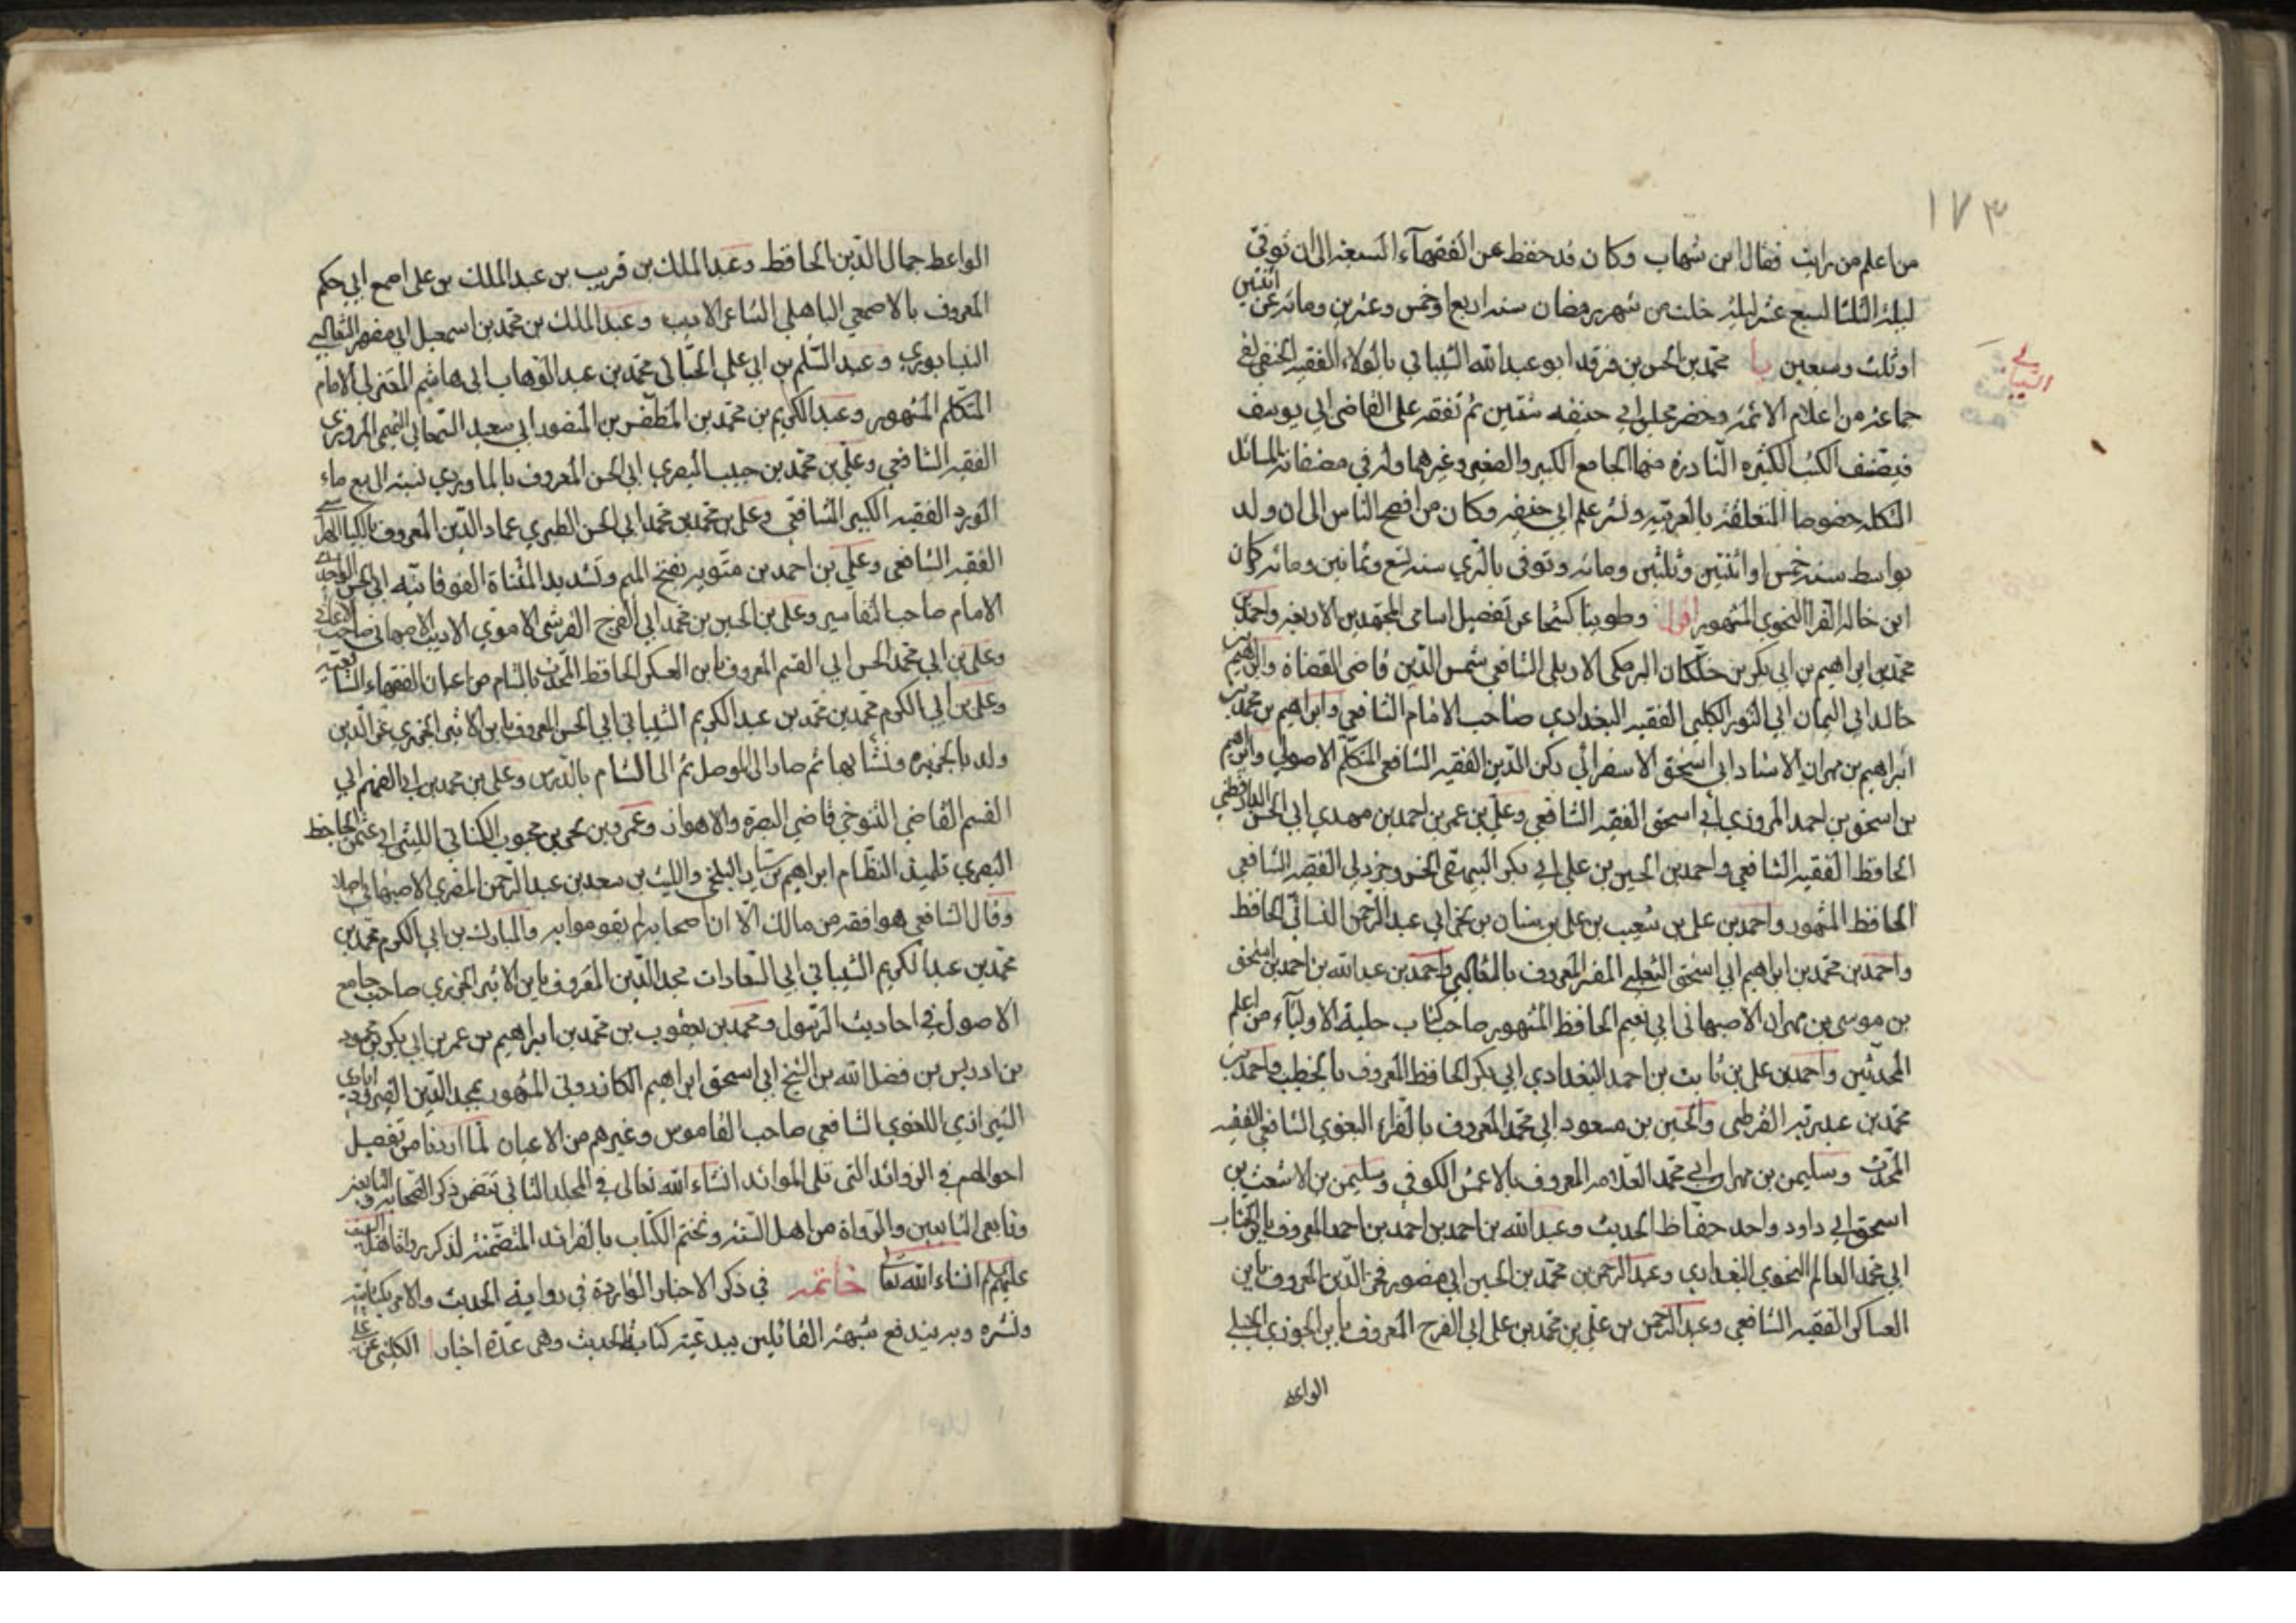 ١٧٣
من اعلم من رايت فقال ابن شهاب وكان قد حفظ عن الفقهآء السبعة الى ان توفى
ليلة الثلثا لسبع عشر ليلة خلت من شهر رمضان سنة اربع او خمس وعشرين ومائة عن اثنتين
او ثلث وسبعين يا محمد بن الحسن بن فرقد ابو عبد الله الشيباني بالولاء الفقيه الحنفي لقي
الشيباني
جماعة من اعلام الائمة وحضر مجلس ابي حنيفه سنتين ثم تفقه على القاضي ابي يوسف
فيصنف الكتب الكثيره النادرة منها الجامع الكبير والصغير وغيرهما وله في مصنفاته المسائل
المشكله خصوصا المتعلقة بالعربيه ونشر علم ابي حنيفه وكان من افصح الناس الى ان ولد
بواسط سنة خمس او اثنتين وثلثين ومائه وتوفى بالري سنة تسع وثمانين ومائه كان
ابن خاله الفرا النحوي المشهور اقول وطوينا كشحا عن تفصيل اسامي المجتهدين الاربعه واحمد بن
محمد بن ابراهيم بن ابي بكر بن خلكان البرمكي الاربلي الشافعي شمس الدين قاضى القضاة وابراهيم بن
خالد ابي اليمان ابي الثور الكلبي الفقيه البغدادي صاحب الامام الشافعي وابراهيم بن محمد بن
ابراهيم بن مهران الاستاد ابي اسحق الاسفرائي ركن الدين الفقيه الشافعي المتكلم الاصولي وابراهيم
بن اسحق بن احمد المروزي ابي اسحق الفقيه الشافعي وعلي بن عمر بن احمد بن مهدي ابي الحسن الدارقطني
الحافظ الفقيه الشافعي واحمد بن الحسين بن علي ابي بكر البيهقي الخسروجردي الفقيه الشافعي
الحافظ المشهور واحمد بن علي بن شعيب بن علي بن سنان بن بحر ابي عبد الرحمن النسائي الحافظ
واحمد بن محمد بن ابراهيم ابي اسحق الثعلبي المفسر المعروف بالثعالبي واحمد بن عبد الله بن احمد بن اسحق
بن موسى بن مهران الاصبهاني ابي نعيم الحافظ المشهور صاحب كتاب حلية الاوليآء من اعلم
المحدثين واحمد بن علي بن ثابت بن احمد البغدادي ابي بكر الحافظ المعروف بالخطيب واحمد بن
محمد بن عبد ربه القرطبي والحسين بن مسعود ابي محمد المعروف بالفراء البغوي الشافعي الفقيه
المحدث وسليمن بن مهران ابي محمد العلامه المعروف بالاعمش الكوفي وسليمن بن الاشعث بن
اسحق ابي داود واحد حفاظ الحديث وعبد الله بن احمد بن احمد بن احمد المعروف بابن الخشاب
ابي محمد العالم النحوي البغدادي وعبد الرحمن بن محمد بن الحسين ابي منصور فخر الدين المعروف بابن
العساكر الفقيه الشافعي وعبد الرحمن بن علي بن محمد بن علي ابي الفرج المعروف بابن الجوزي الحنبلي
الواعظ
الواعظ جمال الدين الحافظ وعبد الملك بن قريب بن عبد الملك بن على اصمع ابي حكم
المعروف بالاصمعي الباهلي الشاعر الاديب وعبد الملك بن محمد بن اسمعيل ابي منصور الثعالبي
النيسابوري وعبد السلم بن ابي علي الجبائي محمد بن عبد الوهاب ابي هاشم المعتزلي الامام
المتكلم المشهور وعبد الكريم بن محمد بن المظفر بن المنصور ابي سعيد السمعاني التميمي المروزي
الفقيه الشافعي وعلي بن محمد بن حبيب البصري ابي الحسن المعروف بالماوردي نسبة الى بيع ماء
الورد الفقيه الكبير الشافعي وعلي بن محمد بن محمد ابي الحسن الطبري عماد الدين المعروف بالكيا الهراسي
الفقيه الشافعي وعلي بن احمد بن متويه بفتح الميم وتشديد المثناة الفوقانيه ابي الحسن الواحدي
الامام صاحب التفاسير وعلي بن الحسين بن محمد ابي الفرج القرشي الاموي الاديب الاصبهاني صاحب الاغاني
وعلي بن ابي محمد الحسن ابي القسم المعروف بابن العساكر الحافظ المحدث بالشام من اعيان الفقهاء الشافعية
وعلي بن ابي الكرم محمد بن محمد بن عبد الكريم الشيباني ابي الحسن المعروف بابن الاثير الجزري عز الدين
ولد بالجزيره ونشأ بها ثم صار الى الموصل ثم الى الشام بالدرس وعلي بن محمد بن ابي الفهم ابي
القسم القاضي التنوخي قاضي البصرة والاهواز وعمرو بن بحر بن محبوب الكناني الليثي ابي عثمن الجاحظ
البصري تلميذ النظام ابراهيم بن سيار البلخي والليث بن سعد بن عبد الرحمن المصري الاصبهاني اصلا
وقال الشافعي هو افقه من مالك الا ان اصحابه لم يقوموا به والمبارك بن ابي الكرم محمد بن
محمد بن عبد الكريم الشيباني ابي السعادات مجد الدين المعروف بابن الاثير الجزري صاحب جامع
الاصول في احاديث الرسول ومحمد بن يعقوب بن محمد بن ابراهيم بن عمر بن ابي بكر بن محمود
بن ادريس بن فضل الله بن الشيخ ابي اسحق ابراهيم الكازروني المشهور بمجد الدين الفيروزابادي
الشيرازي اللغوي الشافعي صاحب القاموس وغيرهم من الاعيان لما اردنا من تفصيل
احوالهم في الزوائد التي تلي الموائد انشاء الله تعالى في المجلد الثاني تتضمن ذكر الصحابه والتابعين
وتابعي التابعين والرواة من اهل السنه ونختم الكتاب بالفرائد المتضمنة لذكر
عليهم انشاء الله تعا خاتمه في ذكر الاخبار الواردة في رواية الحديث والامر بكتابته
ونشره وبه يندفع شبهة القائلين ببدعية كتابة الحديث وهى عدة اخبار ا الكليني عن علي